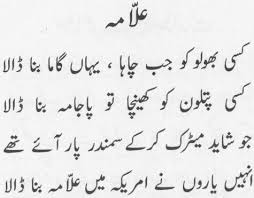 علاّمہ
کسی بھولو کو جب چاہا ، یہاں گاما بنا ڈالا
کسی پتلون کو کھینچا تو پاجامہ بنا ڈالا
جو شاید میٹرک کرکے سمندر پار آئے تھے
انہیں یاروں نے امریکہ میں علاّمہ بنا ڈالا